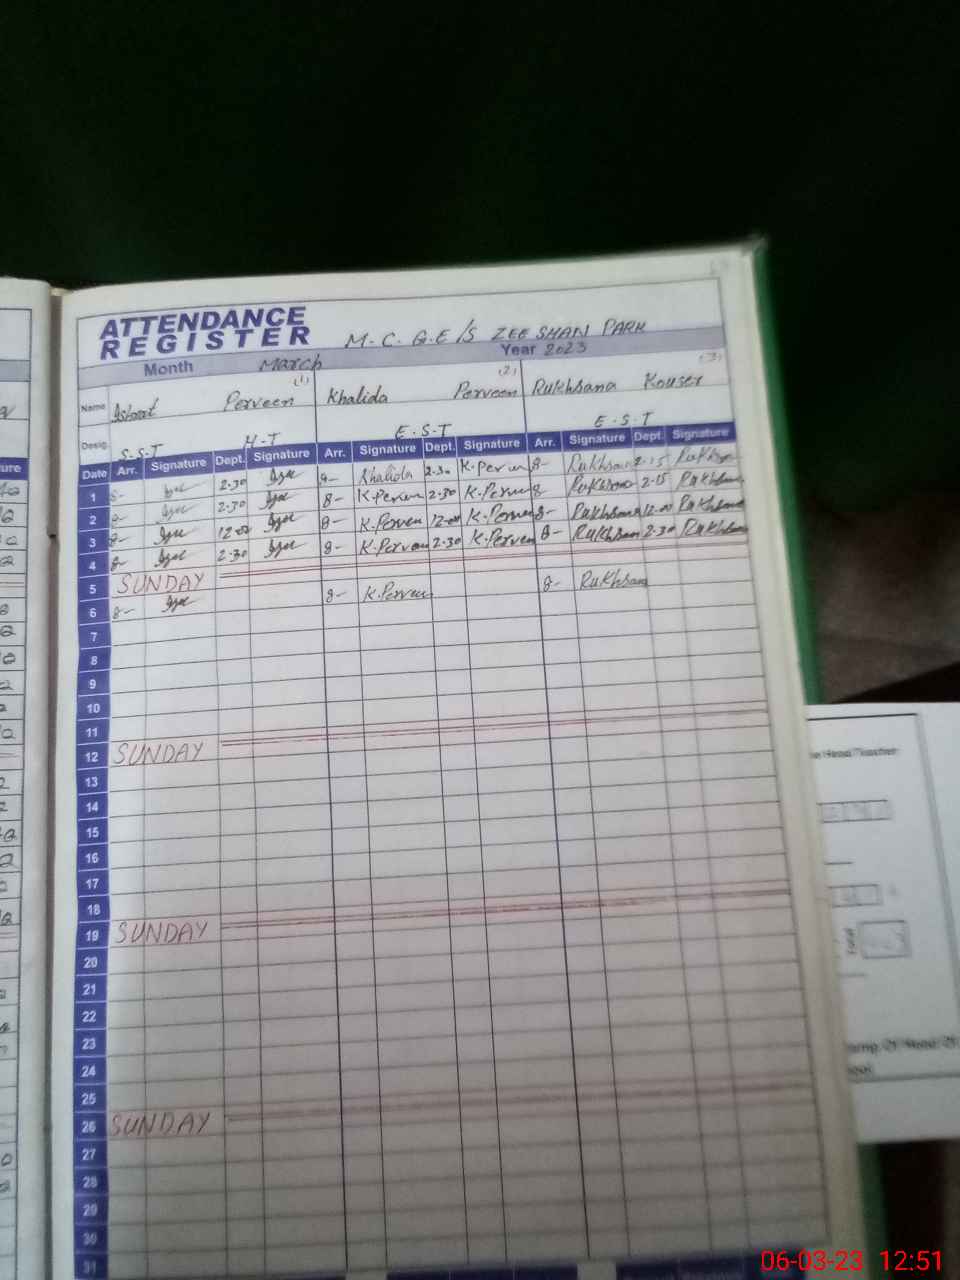 ATTENDANCE
REGISTER M.C. G.E/S ZEE SHAN PARK
Month March Year 2023
(1) (2) (3)
Name Perveen Khalida Perveen Rukhsana Kouser
Desig. S.S.T H.T E.S.T E.S.T
Date Arr. Signature Dept. Signature Arr. Signature Dept. Signature Arr. Signature Dept. Signature
1 8- 2.30 8- Khalida 2.30 K.Perven 8- Rukhsana 2.15 Rukhsana
2 8- 2.30 8- K.Perven 2.30 K.Perven 8- Rukhsana 2.15 Rukhsana
3 8- 12-00 8- K.Perven 12-00 K.Perven 8- Rukhsana 12-00 Rukhsana
4 8- 2.30 8- K.Perven 2.30 K.Perven 8- Rukhsana 2.30 Rukhsana
5 SUNDAY
6 8- 8- K.Perven 8- Rukhsana
7
8
9
10
11
12 SUNDAY
13
14
15
16
17
18
19 SUNDAY
20
21
22
23
24
25
26 SUNDAY
27
28
29
30
31
Head Teacher
06-03-23 12:51